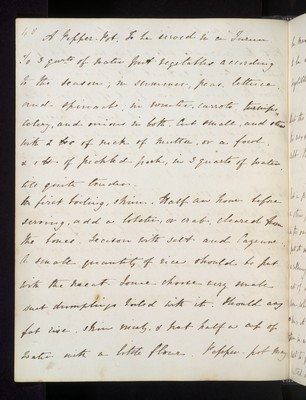 48 A Pepper-Pot. To be served in a Tureen
To 3 quarts of water put vegetables according
to the season; in summer, peas, lettuce
and spinach; in winter, carrots turnips
celery, and onions in both. Cut small, and stew
with 2 lbs of neck of mutton, or a fowl
& 1 lb of pickled pork, in 3 quarts of water
till quite tender.
On first boiling, skim. Half an hour before
serving, add a lobster, or crab, cleared from
the bones. Season with salt and Cayenne.
A small quantity of rice should be put
with the meat. Some choose very small
suet dumplings boiled with it. Should any
fat rise, skim nicely, & put half a cup of
water with a little flour. Pepper-pot may